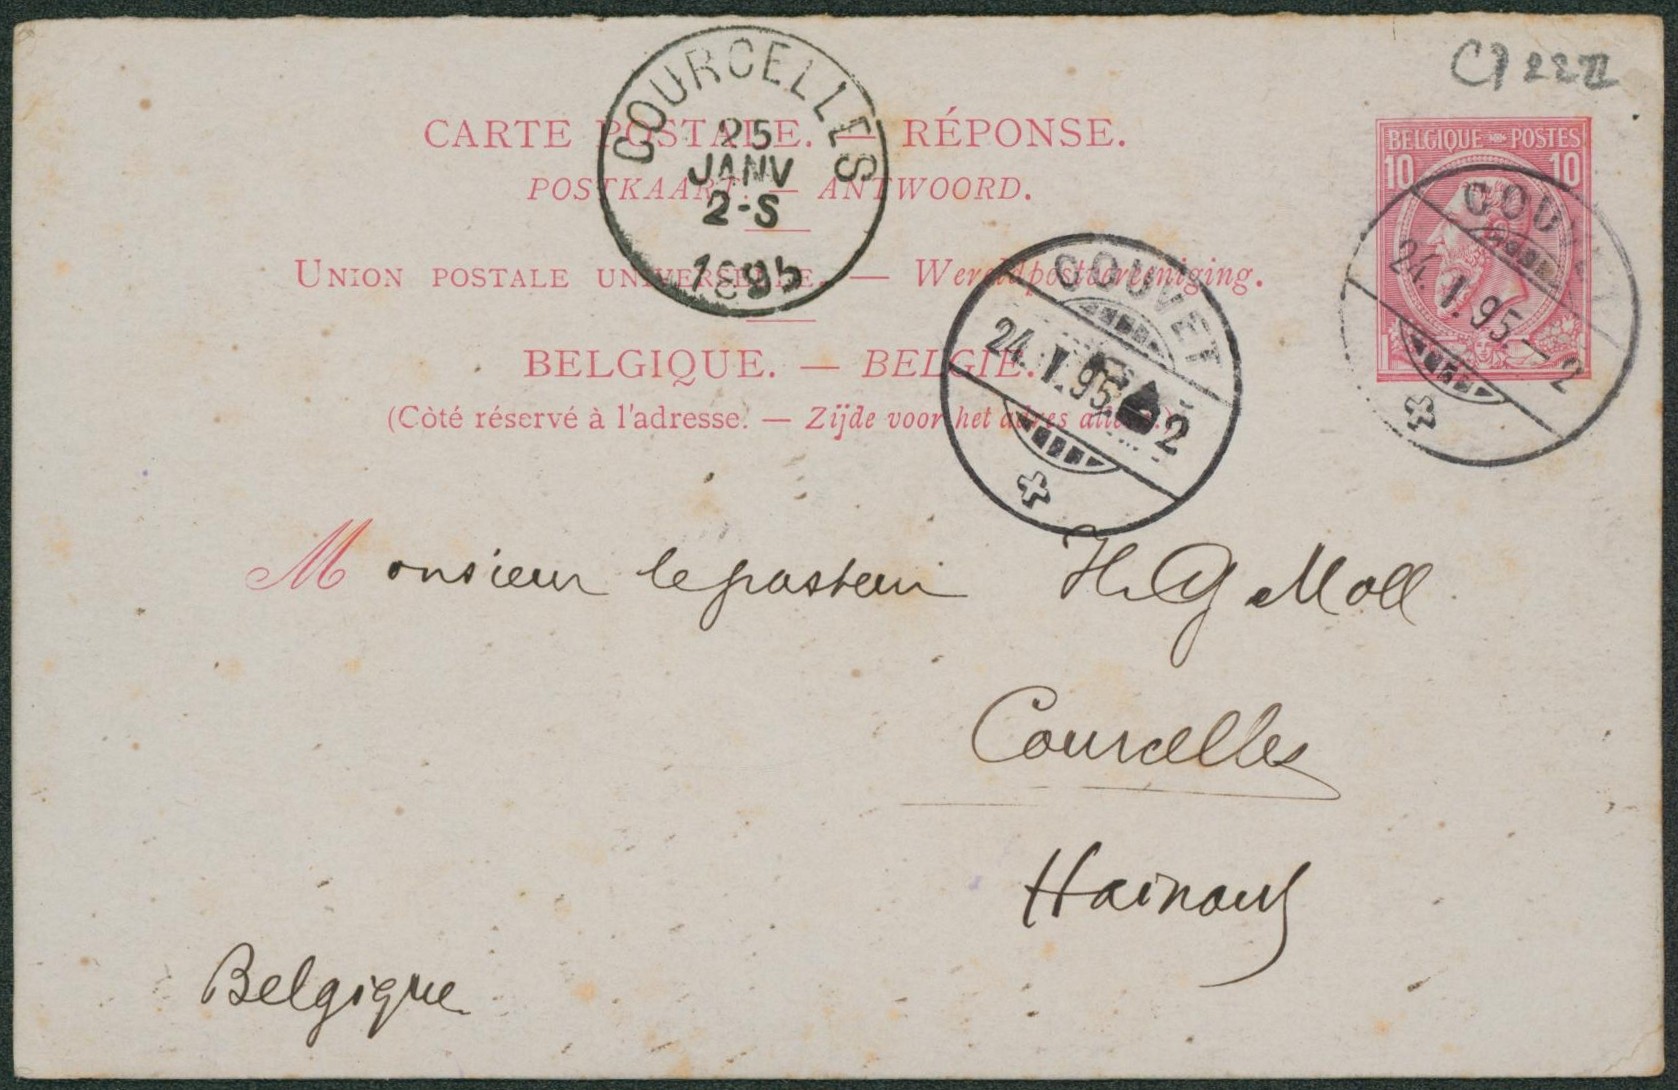 CP 22 II
COURCELLES
25
JANV
2-S
1895
CARTE POSTALE. — RÉPONSE.
POSTKAART. — ANTWOORD.
UNION POSTALE UNIVERSELLE. — Wereldpostvereeniging.
BELGIQUE. — BELGIË.
(Côté réservé à l'adresse. — Zijde voor het adres alleen.)
BELGIQUE POSTES
10 10
COUVET
24.I.95.–2
COUVET
24.I.95. 2
Monsieur le pasteur H. G. Moll
Courcelles
Hainaut
Belgique